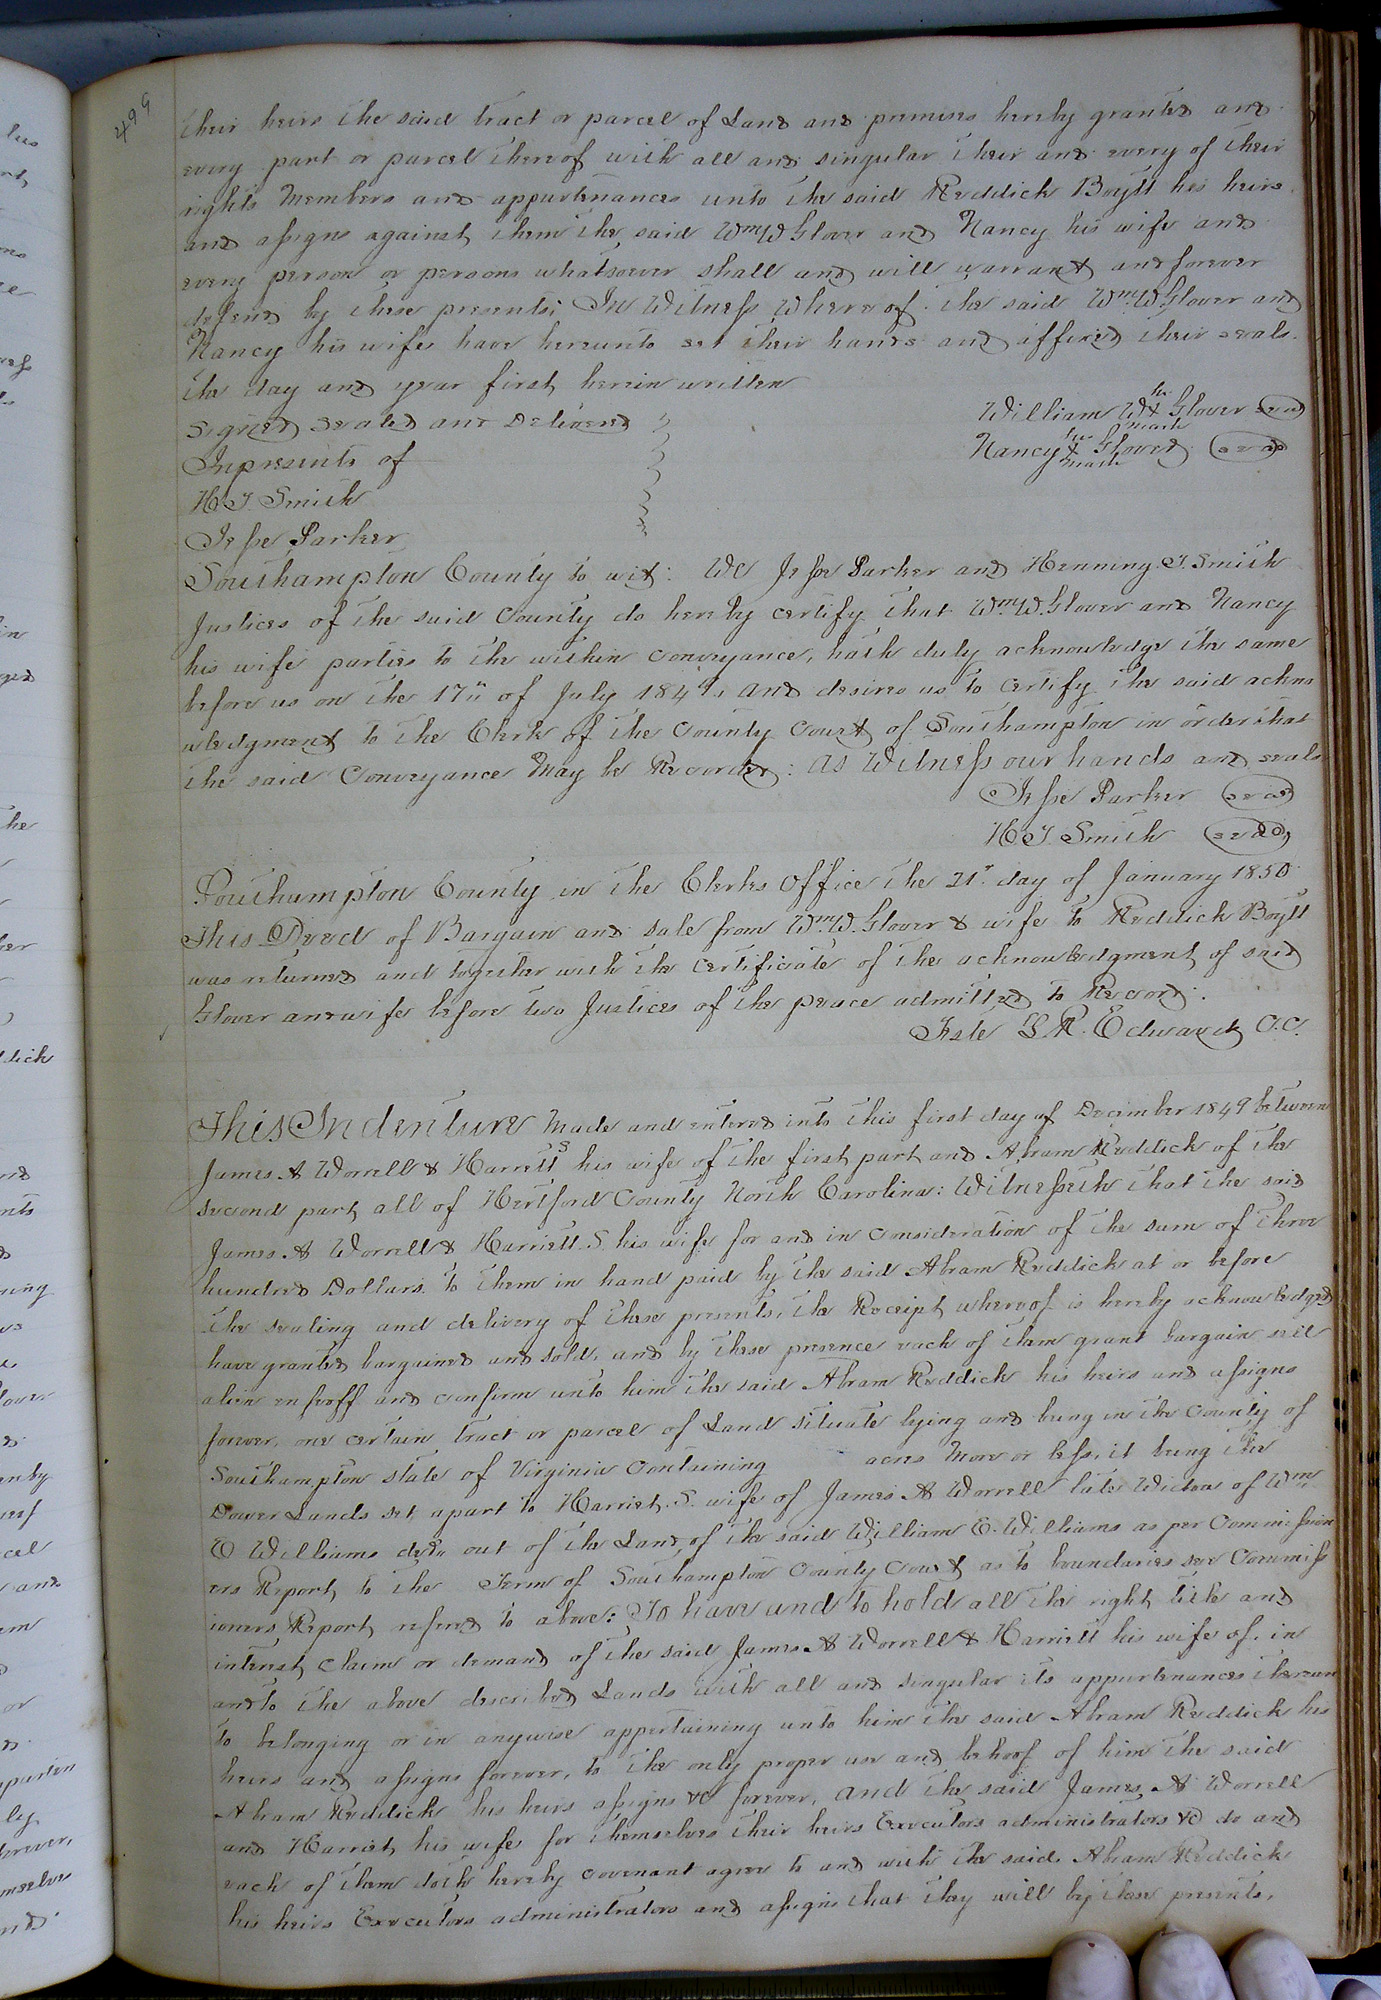 499
their heirs the said tract or parcel of Land and premises hereby granted and
every part or parcel thereof with all and singular their and every of their
rights Members and appurtenances unto the said Reddick Boytt his heirs
and assigns against them the said Wm W Glover and Nancy his wife and
every person or persons whatsoever shall and will warrant and forever
defend by these presents; In Witness Whereof the said Wm W. Glover and
Nancy his wife have hereunto set their hands and affixed their seals
the day and year first herein written
Signed Sealed and Delivered
Inpresents of
H. J. Smith
Jesse Parker
William W his x mark Glover seal
Nancy her x mark Glover seal
Southampton County to wit: We Jesse Parker and Henning J. Smith
Justices of the said County do hereby certify that Wm W. Glover and Nancy
his wife parties to the within conveyance, hath duly acknowledge the same
before us on the 17" of July 184 and desires us to certify the said ackno
wledgment to the Clerk of the County Court of Southampton in order that
the said Conveyance May be Recorded: As Witness our hands and seals
Jesse Parker seal
H. J. Smith seal
Southampton County in the Clerks Office the 21st day of January 1850
This Deed of Bargain and sale from Wm W. Glover & wife to Reddick Boytt
was returned and together with the certificate of the acknowledgment of said
Glover and wife before two Justices of the peace admitted to Record.
Teste L. R. Edwards C.C.
This Indenture Made and entered into this first day of December 1849 between
James A Worrell & Harrett S his wife of the first part and Abram Reddick of the
second part, all of Hertford County North Carolina: Witnesseth that the said
James A Worrell & Harriett S. his wife for and in consideration of the sum of three
hundred Dollars to them in hand paid by the said Abram Reddick at or before
the sealing and delivery of these presents, the Receipt whereof is hereby acknowledged
have granted bargained and sold, and by these presence each of them grant bargain sell
alien enfeoff and confirm unto him the said Abram Reddick his heirs and assigns
forever, one certain tract or parcel of Land situate lying and being in the County of
Southampton state of Virginia Containing acres More or less, it being the
Dower Lands set apart to Harriet. S. wife of James A Worrell late Widow of Wm
E Williams decd" out of the Land of the said William E. Williams as per Commission
ers Report, to the Term of Southampton County Court as to boundaries see Commiss
ioners Report refered to above: To have and to hold all the right title and
interest Claim or demand of the said James A Worrell & Harriett his wife of, in
and to the above described Lands with all and singular its appurtenances thereun
to belonging or in anywise appertaining unto him the said Abram Reddick his
heirs and assigns forever, to the only proper use and behoof of him the said
Abram Reddick his heirs assigns &c forever, And the said James A Worrell
and Harriet his wife for themselves their heirs Executors administrators &c do and
each of them doth hereby covenant agree to and with the said Abram Reddick
his heirs Executors administrators and assigns that they will by these presents,